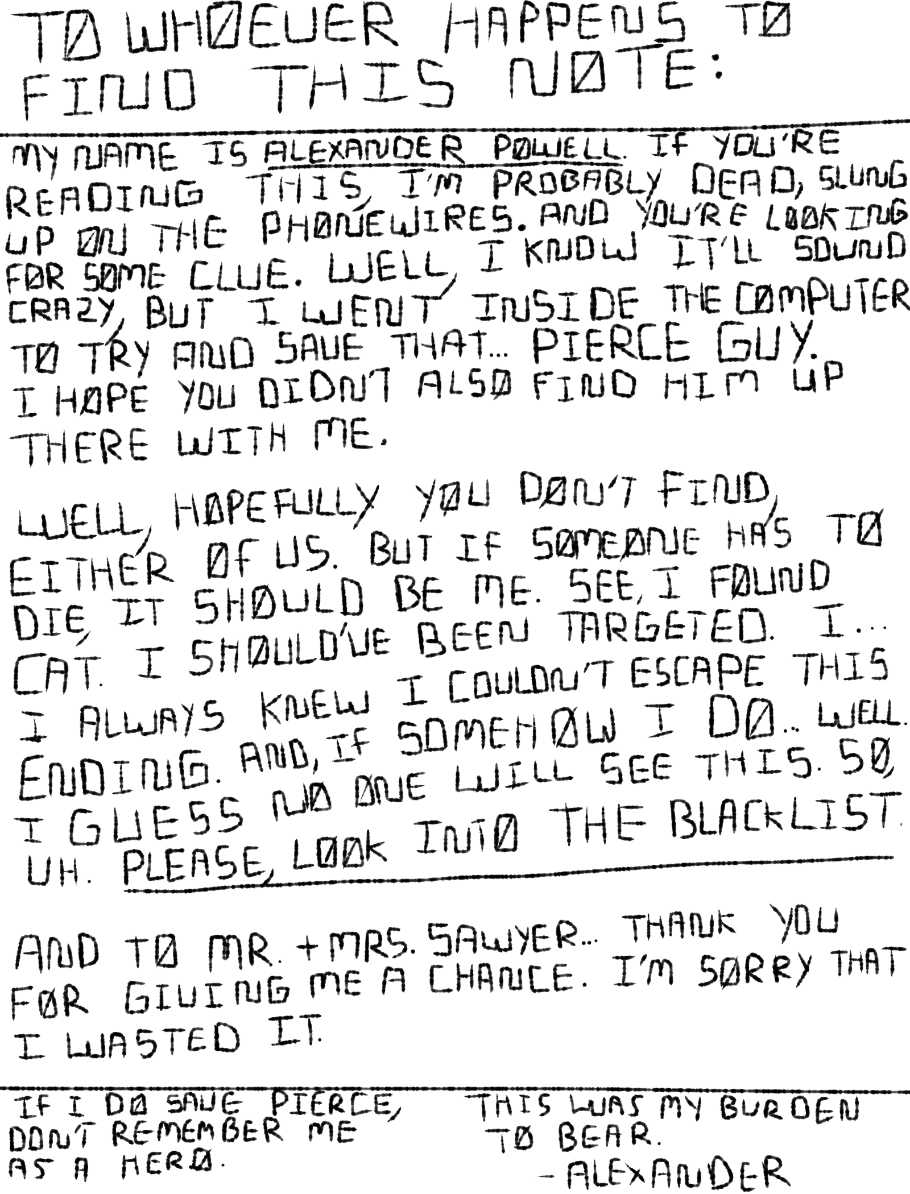 TØ WHØEVER HAPPENS TØ
FIND THIS NØTE:
MY NAME IS ALEXANDER PØWELL. IF YOU'RE
READING THIS, I'M PROBABLY DEAD, SLUNG
UP ØN THE PHØNEWIRES. AND YOU'RE LØØKING
FØR SØME CLUE. WELL, I KNOW IT'LL SOUND
CRAZY, BUT I WENT INSIDE THE CØMPUTER
TØ TRY AND SAVE THAT... PIERCE GUY.
I HØPE YOU DIDN'T ALSØ FIND HIM UP
THERE WITH ME.
WELL, HØPEFULLY YØU DØN'T FIND,
EITHER ØF US. BUT IF SØMEØNE HAS TØ
DIE, IT SHØULD BE ME. SEE, I FØUND
CAT. I SHØULD'VE BEEN TARGETED. I...
I ALWAYS KNEW I COULDN'T ESCAPE THIS
ENDING. AND, IF SOMEHØW I DØ... WELL.
I GUESS NØ ØNE WILL SEE THIS. SØ,
UH. PLEASE, LØØK INTØ THE BLACKLIST.
AND TØ MR. + MRS. SAWYER... THANK YOU
FØR GIVING ME A CHANCE. I'M SØRRY THAT
I WASTED IT.
IF I DØ SAVE PIERCE,
DON'T REMEMBER ME
AS A HERØ.
THIS WAS MY BURDEN
TØ BEAR.
- ALEXANDER